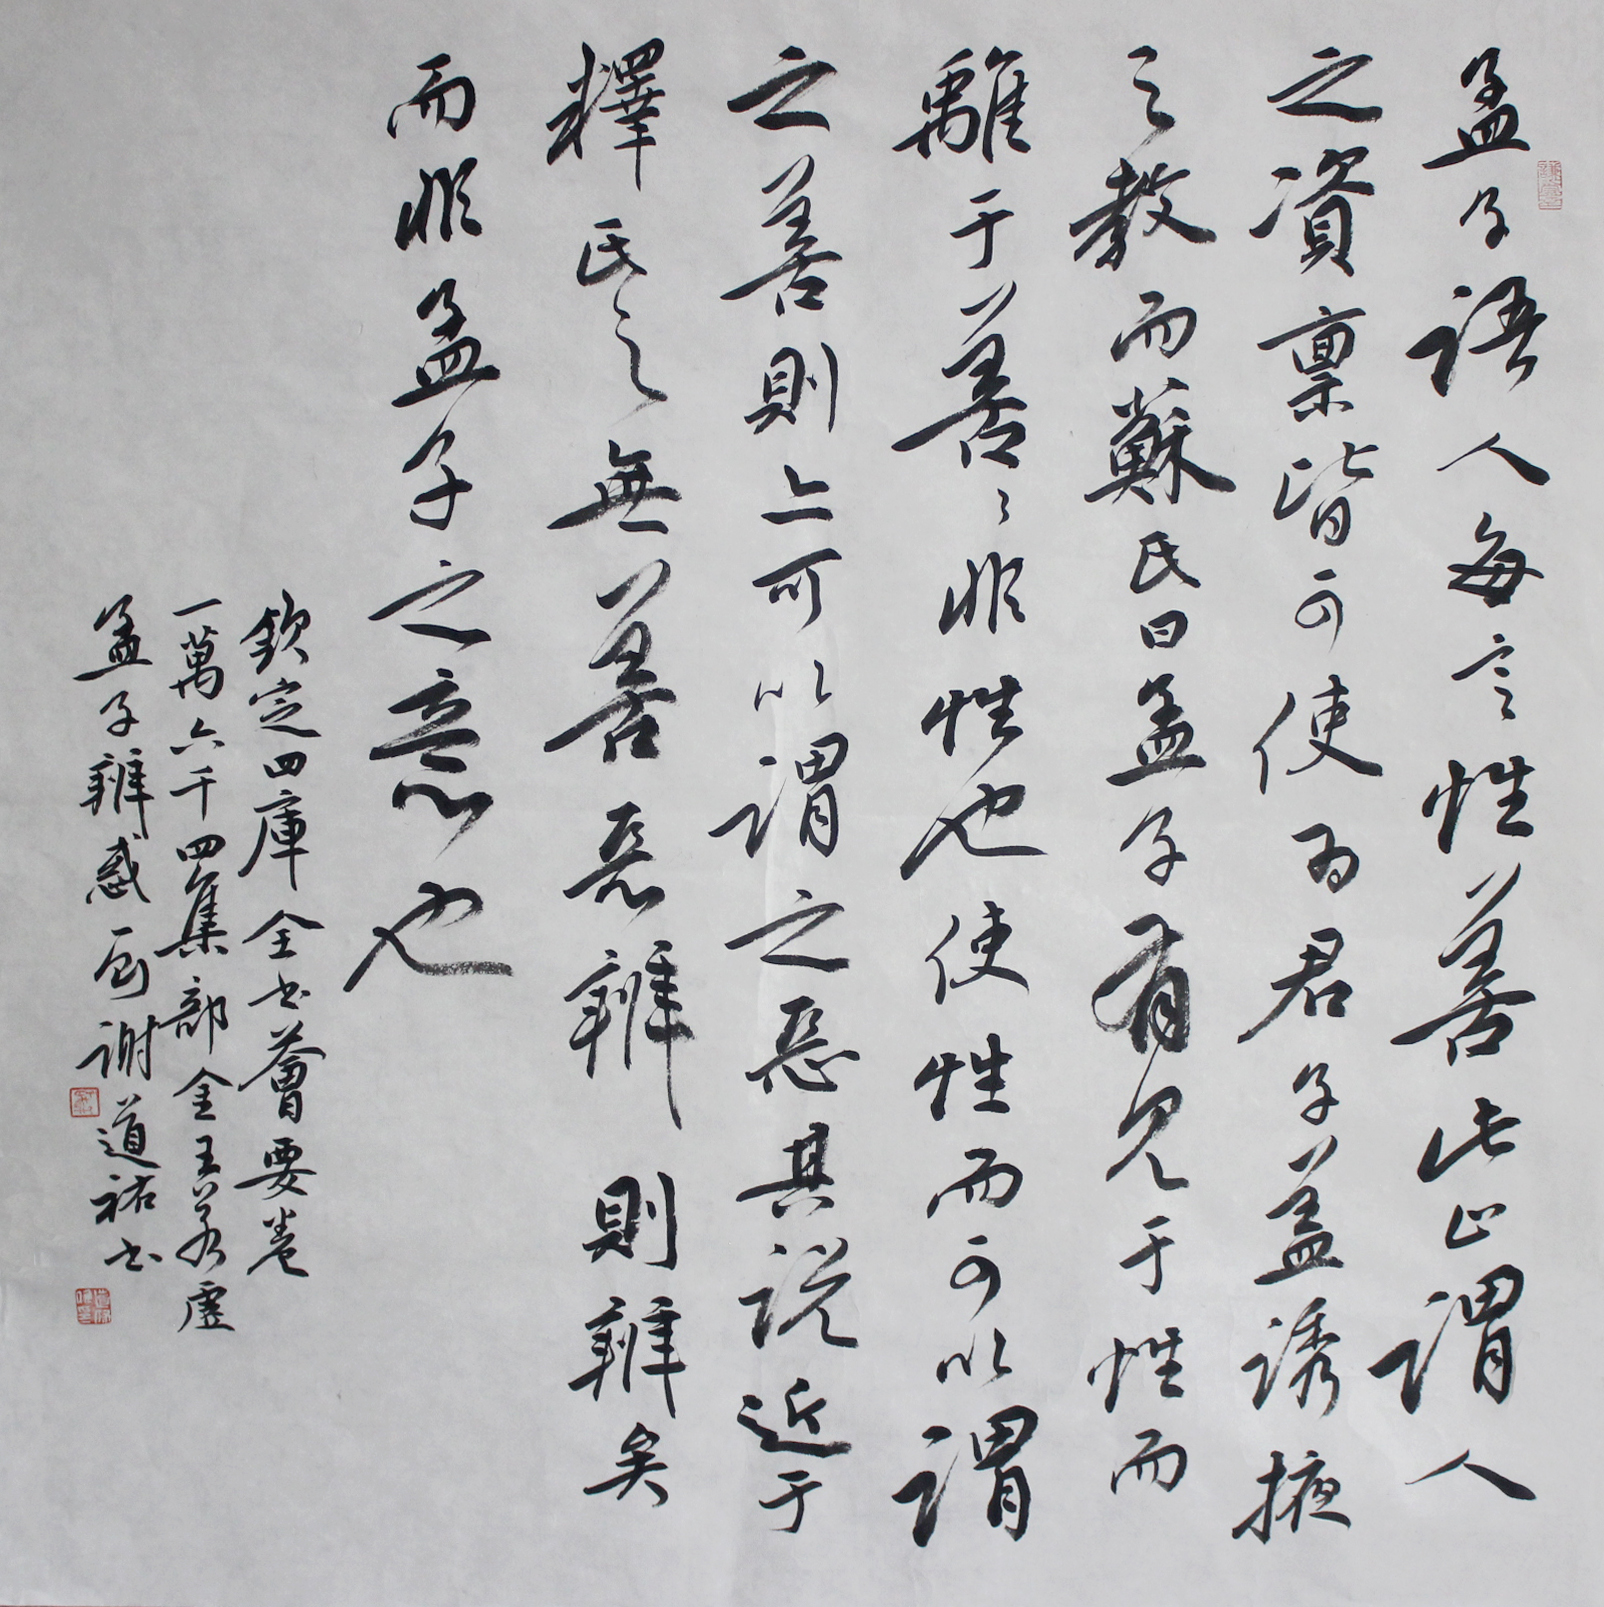 孟子語人每言性善此止謂人
之資稟皆可使為君子蓋誘掖
之教而蘇氏曰孟子有見于性而
離于善善非性也使性而可以謂
之善則亦可以謂之惡其説近于
釋氏之無善惡辨則辨矣
而非孟子之意也
欽定四庫全书薈要卷
一萬六千四集部金王若虛
孟子辨惑句謝道祐书